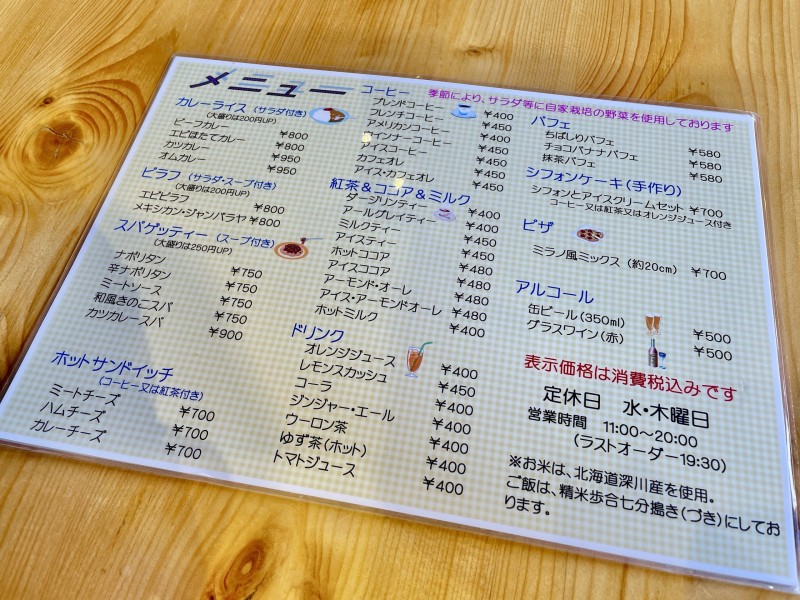 メニュー
季節により、サラダ等に自家栽培の野菜を使用しております
カレーライス（サラダ付き）
（大盛りは200円UP）
ビーフカレー ￥800
エビほたてカレー ￥800
カツカレー ￥950
オムカレー ￥950
ピラフ（サラダ・スープ付き）
（大盛りは200円UP）
エビピラフ ￥800
メキシカン・ジャンバラヤ ￥800
スパゲッティー（スープ付き）
（大盛りは250円UP）
ナポリタン ￥750
辛ナポリタン ￥750
ミートソース ￥750
和風きのこスパ ￥750
カツカレースパ ￥900
ホットサンドイッチ
（コーヒー又は紅茶付き）
ミートチーズ ￥700
ハムチーズ ￥700
カレーチーズ ￥700
コーヒー
ブレンドコーヒー ￥400
フレンチコーヒー ￥450
アメリカンコーヒー ￥400
インナーコーヒー ￥450
アイスコーヒー ￥450
カフェオレ ￥450
アイス・カフェオレ ￥450
紅茶＆ココア＆ミルク
ダージリンティー ￥400
アールグレイティー ￥400
ミルクティー ￥450
アイスティー ￥450
ホットココア ￥480
アイスココア ￥480
アーモンド・オレ ￥480
アイス・アーモンドオーレ ￥480
ホットミルク ￥400
ドリンク
オレンジジュース ￥400
レモンスカッシュ ￥450
コーラ ￥400
ジンジャー・エール ￥400
ウーロン茶 ￥400
ゆず茶（ホット） ￥400
トマトジュース ￥400
パフェ
ちばしりパフェ ￥580
チョコバナナパフェ ￥580
抹茶パフェ ￥580
シフォンケーキ（手作り）
シフォンとアイスクリームセット ￥700
コーヒー又は紅茶又はオレンジジュース付き
ピザ
ミラノ風ミックス（約20cm） ￥700
アルコール
缶ビール（350ml） ￥500
グラスワイン（赤） ￥500
表示価格は消費税込みです
定休日 水・木曜日
営業時間 11:00～20:00
（ラストオーダー19:30）
※お米は、北海道深川産を使用。
ご飯は、精米歩合七分搗き（づき）にしてお
ります。